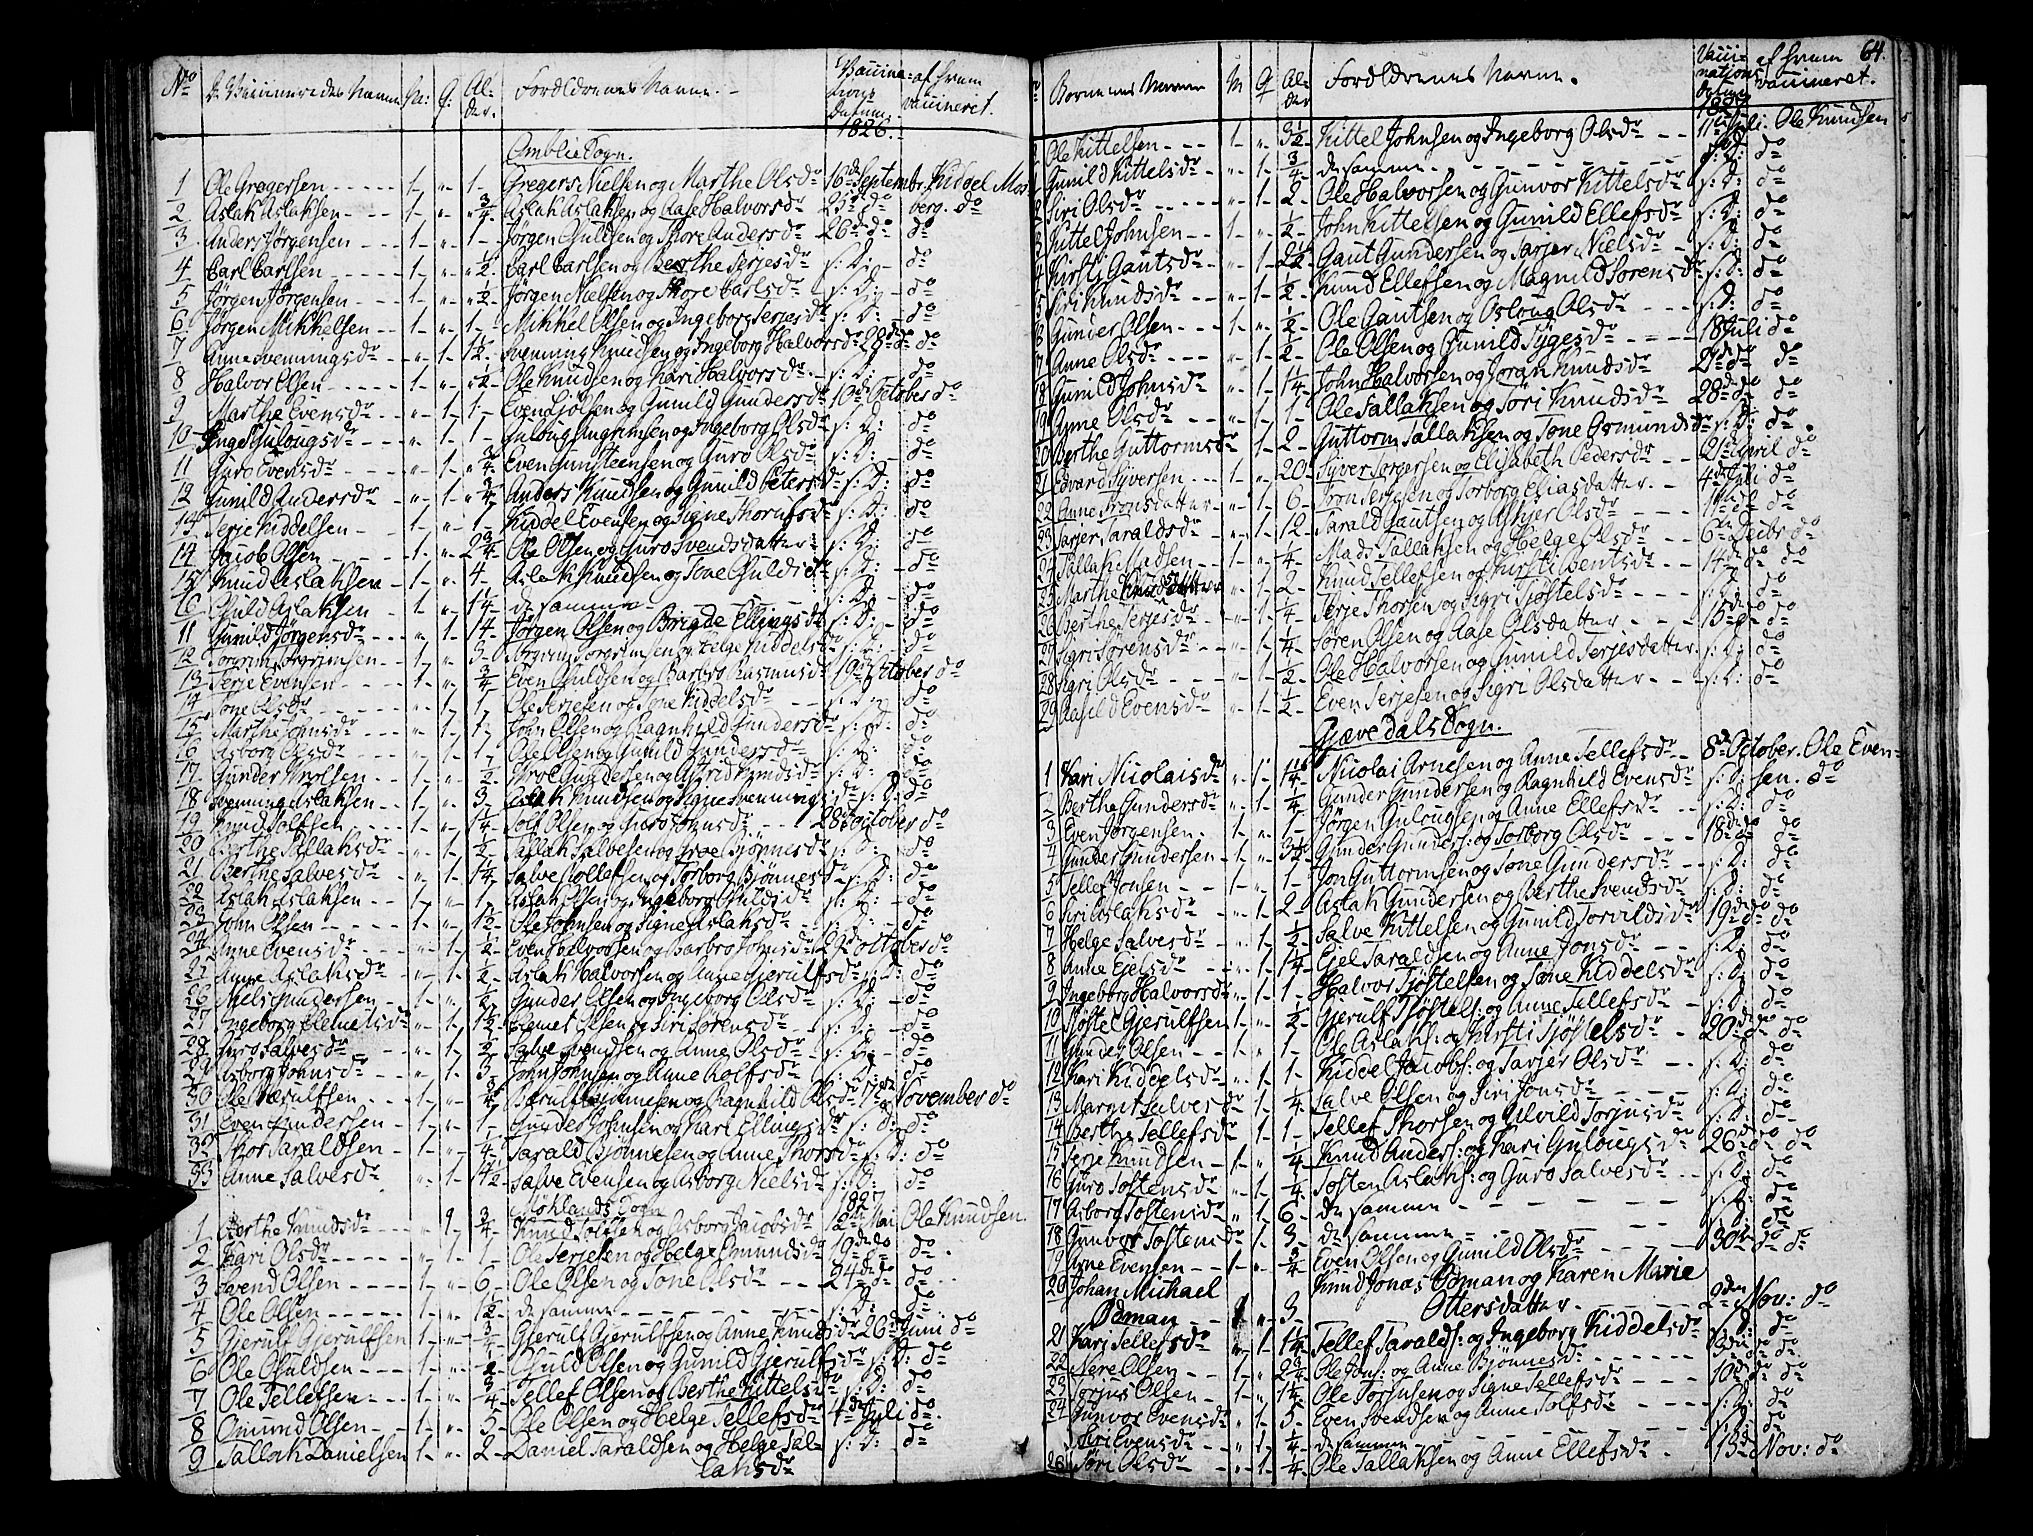 No De Vaccineredes Navne M: Q: Alder. Forældrenes Navne. Vaccinations Datum. 1826. af hvem vaccineret.
Amblie Sogn.
1 Ole Gregersen 1 " 1 Gregers Nielsen og Marthe Olsdr 16de Septembr. Kiddel Mos
2 Aslak Aslaksen 1 " 3/4 Aslak Aslaksen og Aase Halvorsdr 25de do berg. do
3 Anders Jørgensen 1 " 1 Jørgen Guldsen og Thore Andersdr 26de do do
4 Carl Carlsen 1 " 1/2 Carl Carlsen og Berthe Terjesdr s: D: do
5 Jørgen Jørgensen 1 " 1/2 Jørgen Nielsen og Thore Carlsdr s: D: do
6 Jørgen Mikkelsen 1 " 1 Mikkel Olsen og Ingeborg Terjesdr s: D: do
7 Anne Svenningsdr " 1 1 1/2 Svenning Knudsen og Ingeborg Halvorsdr 28de do do
8 Halvor Olsen 1 " 1/2 Ole Knudsen og Kari Halvorsdr s: D: do
9 Marthe Evensdr " 1 1 Even Ljølsen og Gunild Gundersdr 10de October do
10 Inged Gulougsdr " 1 1 Guloug Angrimsen og Ingeborg Olsdr s: D: do
11 Guro Evensdr " 1 3/4 Even Gunsteensen og Guro Olsdr s: D: do
12 Gunild Andersdr " 1 3/4 Anders Knudsen og Gunild Petersdr s: D: do
13 Terje Kiddelsen 1 " 1 Kiddel Evensen og Signe Thorufsdr s: D: do
14 Jacob Olsen 1 " 2 3/4 Ole Olsen og Guro Svendsdatter s: D: do
15 Knud Aslaksen 1 " 4 Aslak Knudsen og Tone Guldsdr s: D: do
16 Guld Aslaksen 1 " 1 1/4 de samme s: D: do
11 Gunild Jørgensdr " 1 1/4 Jørgen Olsen og Brigde Ellingsdr s: D: do
12 Torgrim Torgrimsen 1 " 3 Torgrim Torgrimsen og Helge Kiddelsdr s: D: do
13 Terje Evensen 1 " 3/4 Even Guldsen og Barbro Rasmusdr 19de October do
14 Tone Olsdr " 1 1 Ole Terjesen og Tone Kiddelsdr s: D: do
15 Marthe Johnsdr " 1 1 John Olsen og Ragnhild Gundersdr s: D: do
16 Asborg Olsdr " 1 1 Ole Olsen og Gunild Gundersdr s: D: do
17 Gunder Nrolsen 1 " 1/2 Gundersen og Astrid Knudsdr s: D: do
18 Svenning Aslaksen 1 " 3 Aslak Knudsen og Signe Svenningsdr s: D: do
19 Knud Rolfsen 1 " 1/4 Rolf Olsen og Guro Johnsdr 28de October do
20 Berthe Tallaksdr " 1 1/2 Tallak Salvesen og Groe Bjønnesdr s: D: do
21 Berthe Salvesdr " 1 1/4 Salve Rollefsen og Torborg Bjønnesdr s: D: do
22 Aslak Aslaksen 1 " 1 Aslak Olsen og Ingeborg Guldsdr s: D: do
23 John Olsen 1 " 1 1/2 Ole Johnsen og Signe Aslaksdr s: D: do
24 Anne Evensdr " 1 1/2 Even Halvorsen og Barbro Johnsdr 29de October do
25 Anne Aslaksdr " 1 1/2 Aslak Halvorsen og Anne Gjerulfsdr s: D: do
26 Niels Gundersen 1 " 1/2 Gunder Olsen og Ingeborg Olsdr s: D: do
27 Ingeborg Clemetsdr " 1 1 1/2 Clemet Olsen og Siri Sørensdr s: D: do
28 Guro Salvesdr " 1 1/2 Salve Svendsen og Anne Olsdr s: D: do
29 Asborg Johnsdr " 1 3 John Johnsen og Anne Rolfsdr s: D: do
30 Ole Værulfsen 1 " 3/4 Værulf Bjønnesen og Ragnhild Olsdr 1ste November do
31 Even Gundersen 1 " 1 Gunder Johnsen og Kari Ellingsdr s: D: do
32 Thor Taraldsen 1 " 1/4 Tarald Bjønnesen og Anne Thorsdr s: D: do
33 Anne Salvesdr " 1 1 1/2 Salve Evensen og Asborg Nielsdr s: D: do
Møklands Sogn 1827
1 Berthe Knudsdr " 1 3/4 Knud Tolfsen og Asborg Jacobsdr 12te Mai Ole Knudsen.
2 Kari Olsdr " 1 1 Ole Terjesen og Helge Omundsdr 19de do do
3 Svend Olsen 1 " 6 Ole Olsen og Tone Olsdr 24de do do
4 Ole Olsen 1 " 1/2 de samme s: D: do
5 Gjerulf Gjerulfsen 1 " 3/4 Gjerulf Gjerulfsen og Anne Knudsdr 26de Juni do
6 Ole Guldsen 1 " 2 Guld Olsen og Gunild Gjerulfsdr s: D: do
7 Ole Tellefsen 1 " 3/4 Tellef Olsen og Berthe Kittelsdr s: D: do
8 Omund Olsen 1 " 5 Ole Olsen og Helge Tellefsdr 4de Juli do
9 Tallak Danielsen 1 " 2 Daniel Taraldsen og Helge Tallaksdr s: D: do
64
Børnenes Navne M Q Alder Forældrenes Navne. Vaccinations Datum 1827 af hvem vaccineret.
Ole Kittelsen 1 " 3 1/2 Kittel Johnsen og Ingeborg Olsdr 11te Juli: Ole Knudsen
Gunild Kittelsdr " 1 3/4 de samme s: D: do
Siri Olsdr " 1 2 Ole Halvorsen og Gunvor Kittelsdr s: D: do
Kittel Johnsen 1 " 1/2 John Kittelsen og Gunild Ellefsdr s: D: do
Kirsti Gautsdr " 1 2 1/2 Gaut Gundersen og Tarjer Nielsdr s: D: do
Siri Knudsdr " 1 1/2 Knud Ellefsen og Magnild Sørensdr s: D: do
Gunder Olsen 1 " 1/2 Ole Gautsen og Osloug Olsdr s: D: do
Anne Olsdr " 1 1/2 Ole Olsen og Gunild Sygesdr 18de Juli do
18 Gunild Johnsdr " 1 1/4 John Halvorsen og Joran Knudsdr 27de do do
19 Anne Olsdr " 1 1 Ole Tallaksen og Tøri Knudsdr 28de do do
20 Berthe Guttormsdr " 1 2 Guttorm Tallaksen og Tone Osmundsdr s: D: do
21 Edvard Syversen 1 " 20 Syver Torgersen og Elisabeth Pedersdr 21de April do
22 Anne Tronsdatter " 1 6 Tron Terjesen og Torborg Eliasdatter 4de Juli do
23 Tarjer Taraldsdr " 1 12 Tarald Gautsen og Askjer Olsdr 11te do do
24 Tallak Madsen 1 " 1/4 Mads Tallaksen og Helge Olsdr 6te Decbr do
25 Marthe Knudsdatter " 1 2 Knud Tellefsen og Kirsti Bentsdr 14de do do
26 Berthe Terjesdr " 1 1/4 Terje Thorsen og Sigri Tjøstelsdr s: D: do
27 Sigri Sørensdr " 1 1/4 Søren Olsen og Aase Olsdatter 15de do do
28 Sigri Olsdr " 1 1/2 Ole Halvorsen og Gunild Terjesdatter s: D: do
29 Aasild Evensdr " 1 1/2 Even Terjesen og Sigri Olsdatter s: D: do
Gjævedals Sogn.
1 Kari Nicolaisdr " 1 1/4 Nicolai Arnesen og Anne Tellefsdr 8de October. Ole Even-
2 Berthe Gundersdr " 1 1/4 Gunder Gundersen og Ragnhild Evensdr s: D: sen. do
3 Even Jørgensen 1 " 1 Jørgen Gulougsen og Anne Ellefsdr s: D: do
4 Gunder Gundersen 1 " 3 1/2 Gunder Gunders: og Torborg Olsdr 18de do do
5 Tellef Jonsen 1 " 1 Jon Guttormsen og Tone Gundersdr s: D: do
6 Siri Aslaksdr " 1 2 Aslak Gundersen og Berthe Svendsdr s: D: do
7 Helge Salvesdr " 1 1/2 Salve Kittelsen og Gunild Torvildsdr 19de do do
8 Anne Ejelsdr " 1 1/4 Ejel Taraldsen og Anne Jonsdr s: D: do
9 Ingeborg Halvorsdr " 1 1 Halvor Tjøstelsen og Tone Kiddelsdr s: D: do
10 Tjøstel Gjerulfsen 1 " 1/2 Gjerulf Tjøstels: og Anne Tellefsdr s: D: do
11 Gunder Olsen 1 " 1 Ole Aslaks: og Kirsti Tjøstelsdr 20de do do
12 Kari Kiddelsdr " 1 1 Kiddel Jacobs: og Tarjer Olsdr s: D: do
13 Margit Salvesdr " 1 1/4 Salve Olsen og Siri Jonsdr s: D: do
14 Berthe Tellefsdr " 1 1 Tellef Thorsen og Alvild Torjusdr s: D: do
15 Terje Knudsen 1 " 1/4 Knud Anders: og Kari Gulougsdr 26de do do
16 Guro Tostensdr " 1 1/4 Tosten Aslaks: og Guro Salvesdr s: D: do
17 Asborg Tostensdr " 1 6 de samme s: D: do
18 Gunvor Tostensdr " 1 3 de samme s: D: do
19 Arne Evensen 1 " 3/4 Even Olsen og Gunild Olsdr 30te do do
20 Johan Michael Knud Jonas Ødman og Karen Marie
Ødman 1 " 3 Ottersdatter. 2den Nov: do
21 Kari Tellefsdr " 1 1/4 Tellef Taralds: og Ingeborg Kiddelsdr s: D: do
22 Nere Olsen 1 " 2 3/4 Ole Jons: og Anne Bjønnesdr 3die do do
23 Torjus Olsen 1 " 1/4 Ole Torjusen og Signe Tellefsdr 10de do do
24 Gunvor Evensdr " 1 3 Even Svendsen og Anne Tolfsdr s: D: do
Siri Evensdr " 1 1/4 de samme s: D: do
26 Tori Olsdr " 1 1/4 Ole Tallaksen og Anne Ellefsdr 13de Nov: do